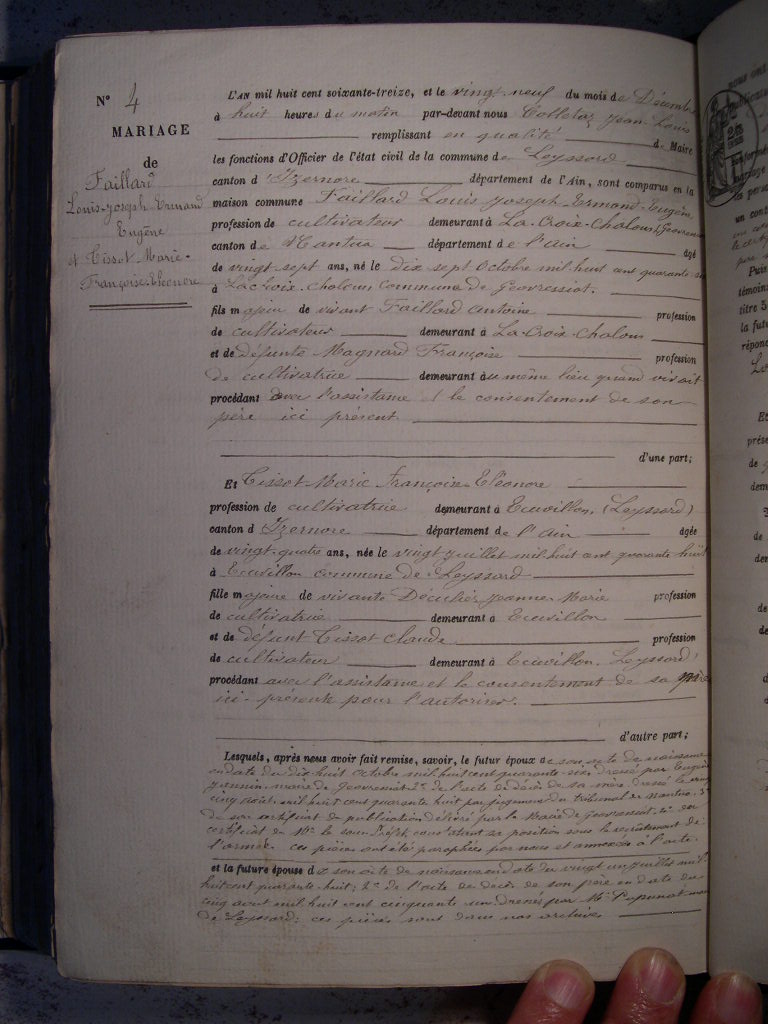 N° 4
MARIAGE
de
Faillard
Louis-Joseph Ermand
Eugène
et Tissot Marie-
Françoise-Eléonore
L'AN mil huit cent soixante-treize, et le vingt-neuf du mois de Décembre
à huit heures du matin par-devant nous Colletaz Jean Louis
remplissant en qualité de Maire
les fonctions d'Officier de l'état civil de la commune de Leyssard
canton d'Izernore département de l'Ain, sont comparus en la
maison commune Faillard Louis Joseph Ermond Eugène
profession de cultivateur demeurant à La Croix-Chalons, Geovressiat
canton de Nantua département de l'ain âgé
de vingt sept ans, né le dix sept Octobre mil huit cent quarante six
à La Croix-Chalons, Commune de Geovressiat.
fils majeur de vivant Faillard Antoine profession
de cultivateur demeurant à La Croix-Chalons
et de défunte Magnard Françoise profession
de cultivatrice demeurant au même lieu quand vivait
procédant avec l'assistance et le consentement de son
père ici présent.
d'une part;
Et Tissot Marie Françoise Eléonore
profession de cultivatrice demeurant à Ecuvillon, (Leyssard)
canton d'Izernore département de l'ain âgée
de vingt-quatre ans, née le vingt Juillet mil huit cent quarante huit
à Ecuvillon commune de Leyssard
fille majeure de vivante Décusier Jeanne Marie profession
de cultivatrice demeurant à Ecuvillon
et de défunt Tissot Claude profession
de cultivateur demeurant à Ecuvillon, Leyssard
procédant avec l'assistance et le consentement de sa mère
ici-présente pour l'autoriser.
d'autre part;
Lesquels, après nous avoir fait remise, savoir, le futur époux de son acte de naissance
en date du dix huit octobre mil huit cent quarante-six dressé par Eugène
maire de Geovressiat 2° de l'acte de décès de sa mère dressé le vingt
cinq août mil huit cent quarante huit par jugement du Tribunal de Nantua, 3°
de son certificat de publication délivré par la Mairie de Geovressiat. 4° du
certificat de Mr le sous Préfet constatant sa position sous le recrutement de
l'armée. ces pièces ont été paraphées par nous et annexées à l'acte.
et la future épouse de son acte de naissance en date du vingt un juillet mil
huit cent quarante-huit; 2° de l'acte de décès de son père en date du
cinq aout mil huit cent cinquante un dressés par Mr maire
de Leyssard; ces pièces sont dans nos archives